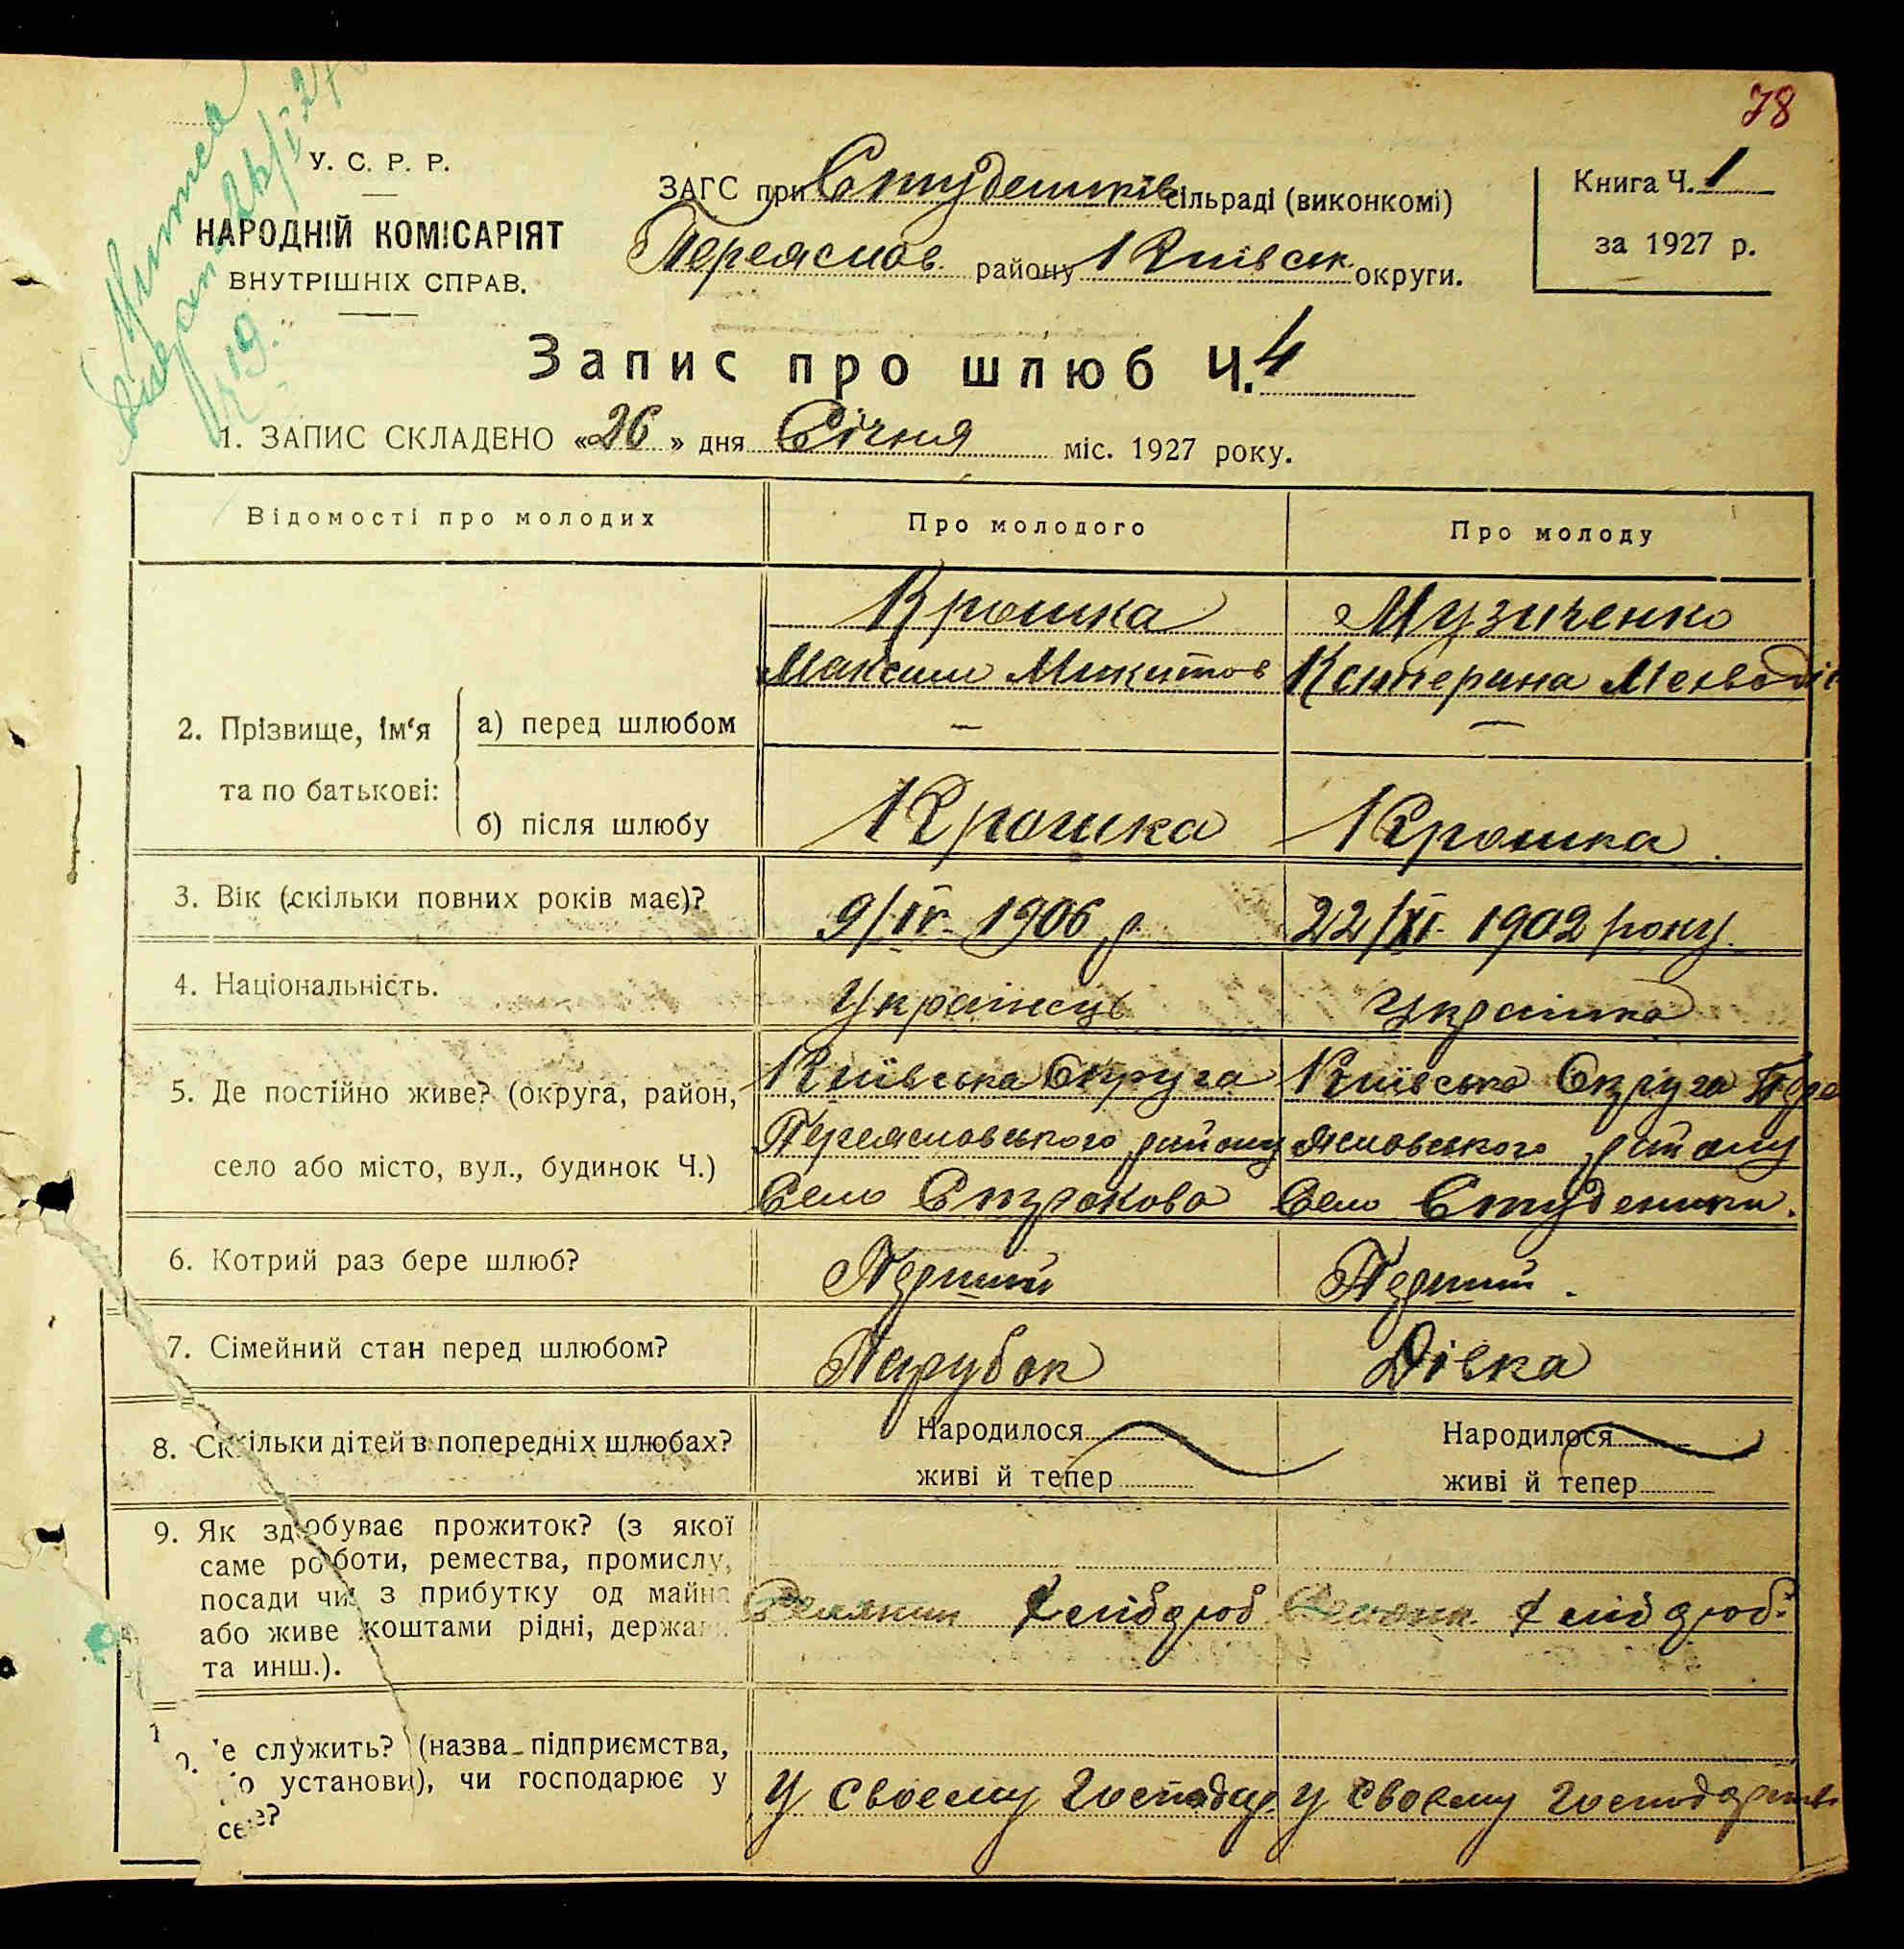 78
У. С. Р. Р.
НАРОДНІЙ КОМІСАРІЯТ
ВНУТРІШНІХ СПРАВ.
ЗАГС при Студеників сільраді (виконкомі)
Переяслов. району Київськ. округи.
Книга Ч. 1
за 1927 р.
Запис про шлюб Ч. 4
1. ЗАПИС СКЛАДЕНО «26» дня Січня міс. 1927 року.
Відомості про молодих Про молодого Про молоду
Крошка Музиченко
Максим Микитов Катерина Мехводіє
2. Прізвище, ім‘я та по батькові:
а) перед шлюбом — —
б) після шлюбу Крошка Крошка
3. Вік (скільки повних років має)? 9/IV. 1906 р. 22/XI. 1902 року.
4. Національність. Українець Українка
5. Де постійно живе? (округа, район, Київська Округа Київська Округа Пере
Переясловського району ясловського району
село або місто, вул., будинок Ч.) Село Строкова Село Студеники.
6. Котрий раз бере шлюб? Перший Перший.
7. Сімейний стан перед шлюбом? Парубок Дівка
8. Скільки дітей в попередніх шлюбах? Народилося Народилося
живі й тепер живі й тепер
9. Як здобуває прожиток? (з якої
саме роботи, ремества, промислу,
посади чи з прибутку од майна
або живе коштами рідні, держав.
та инш.).
Селянин Хлібороб Хлібороб.
е служить? (назва підприємства,
установи), чи господарює у
себе?
У своєму Господар. У своєму Господарстві